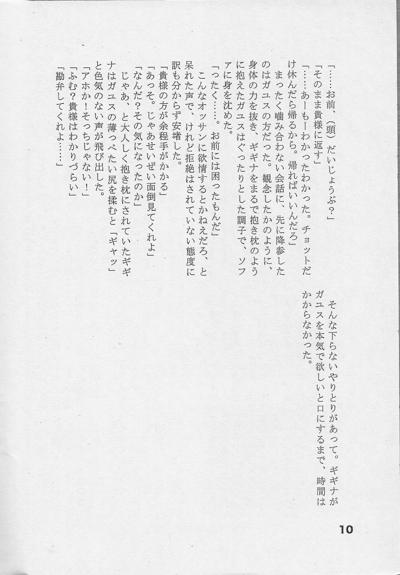 「……お前、（頭）だいじょうぶ？」
「そのまま貴様に返す」
「……あーもーわかったわかった。チョットだ
け休んだら帰るから。帰ればいいんだろ」
まったく噛み合わない会話に、先に降参した
のはガユスの方だった。観念したかのように、
身体の力を抜き、ギギナをまるで抱き枕のよう
に抱えたガユスはぐったりとした調子で、ソフ
ァに身を沈めた。
「ったく……。お前には困ったもんだ」
こんなオッサンに欲情するとかねえだろ、と
呆れた声で、けれど拒絶はされていない態度に
訳も分からず安堵した。
「貴様の方が余程手がかかる」
「あっそ。じゃあせいぜい面倒見てくれよ」
「なんだ？その気になったのか」
じゃあ、と大人しく抱き枕にされていたギギ
ナはガユスの薄っぺたい尻を揉むと「ギャッ」
と色気のない声が飛び出した。
「アホか！そっちじゃない！」
「ふむ？貴様はわかりづらい」
「勘弁してくれよ……」
そんな下らないやりとりがあって。ギギナが
ガユスを本気で欲しいと口にするまで、時間は
かからなかった。
10